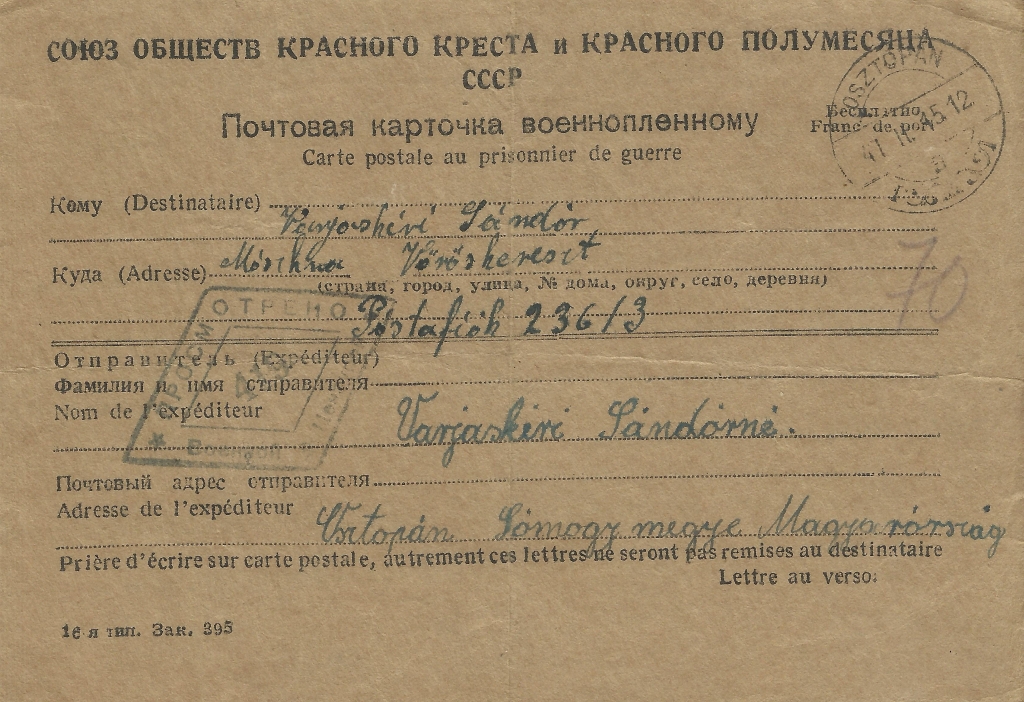 СОЮЗ ОБЩЕСТВ КРАСНОГО КРЕСТА и КРАСНОГО ПОЛУМЕСЯЦА
СССР
OSZTOPÁN
Почтовая карточка военнопленному
Бесплатно
Franc de port
Carte postale au prisonnier de guerre
Кому (Destinataire)
Varjaskéri Sándor
Куда (Adresse) Moszkva Vöröskereszt
(страна, город, улица, № дома, округ, село, деревня)
70
Póstafiók 236/3
Отправитель (Expéditeur)
Фамилия и имя отправителя
Nom de l'expéditeur
Varjaskéri Sándorné.
Почтовый адрес отправителя
Adresse de l'expéditeur
Osztopán Sómogy megye Magyarórság
Prière d'écrire sur carte postale, autrement ces lettres ne seront pas remises au destinataire
Lettre au verso:
16-я тип. Зак. 395